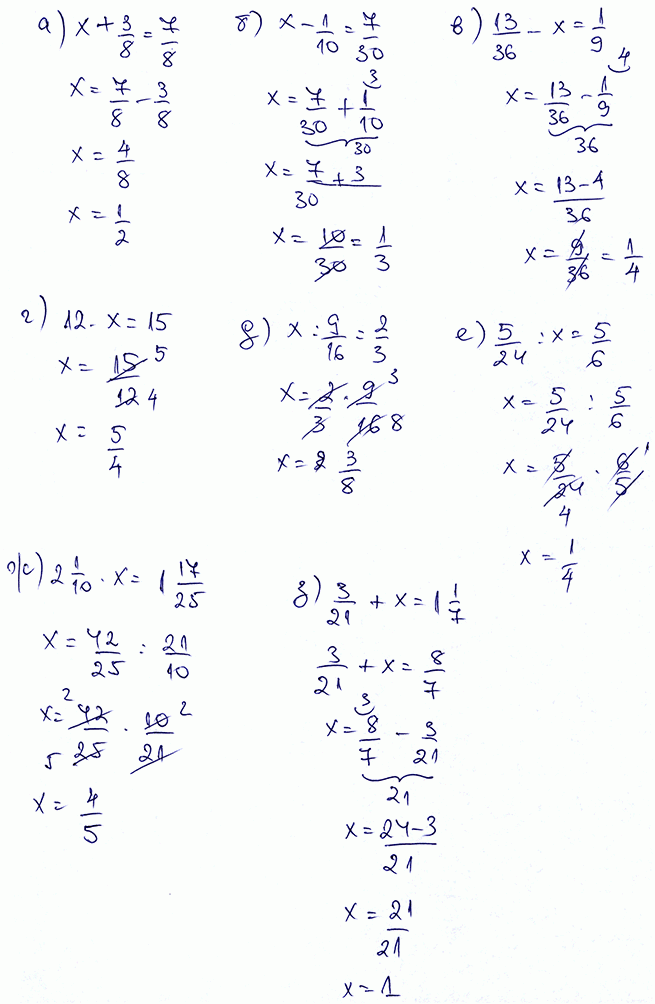 а) x + 3/8 = 7/8
x = 7/8 - 3/8
x = 4/8
x = 1/2
б) x - 1/10 = 7/30
3
x = 7/30 + 1/10
30
x = 7 + 3 / 30
x = 10/30 = 1/3
в) 13/36 - x = 1/9
4
x = 13/36 - 1/9
36
x = 13 - 4 / 36
x = 9/36 = 1/4
г) 12 · x = 15
x = 15 5 / 12 4
x = 5/4
д) x : 9/16 = 2/3
x = 2/3 · 9 3 / 16 8
x = 3/8
е) 5/24 : x = 5/6
x = 5/24 : 5/6
x = 5/24 · 6 1 / 5
4
x = 1/4
ж) 2 1/10 · x = 1 17/25
x = 42/25 : 21/10
x = 2 42 / 5 25 · 10 2 / 21
x = 4/5
з) 3/21 + x = 1 1/7
3/21 + x = 8/7
3
x = 8/7 - 3/21
21
x = 24 - 3 / 21
x = 21/21
x = 1